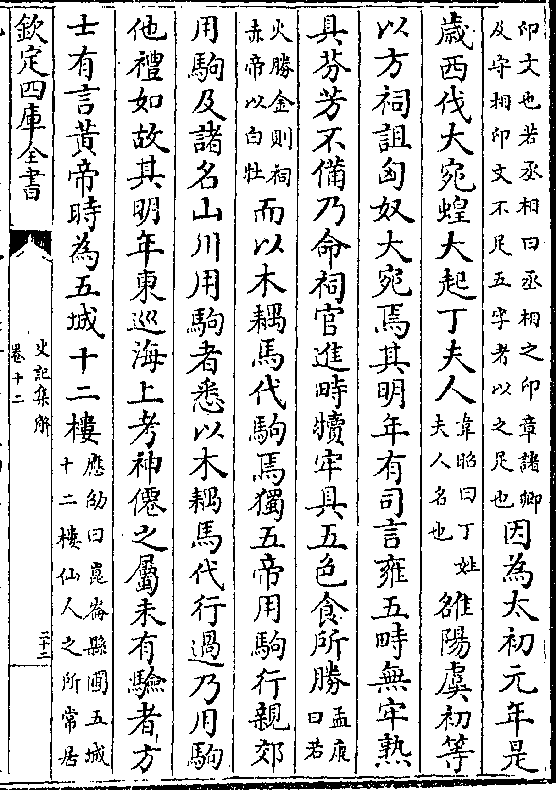 印文也若丞相曰丞相之印章諸卿
及守相印文不足五字者以之足也
因為太初元年是
歲西伐大宛蝗大起丁夫人
韋昭曰丁姓
夫人名也
雒陽虞初等
以方祠詛匈奴大宛焉其明年有司言雍五畤無牢熟
具芬芳不備乃命祠官進畤犢牢具五色食所勝
孟康
曰若
火勝金則祠
赤帝以白牡
而以木耦馬代駒焉獨五帝用駒行親郊
用駒及諸名山川用駒者悉以木耦馬代行過乃用駒
他禮如故其明年東巡海上考神僊之屬未有驗者方
士有言黃帝時為五城十二樓
應劭曰崑崙縣圃五城
十二樓仙人之所常居
欽定四庫全書
史記集解
卷十二
二十二